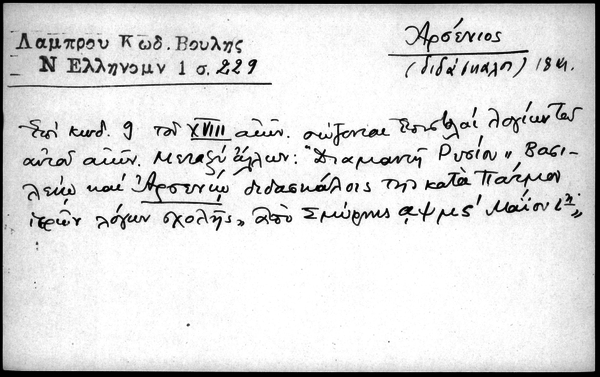 Λάμπρου Κωδ. Βουλῆς
Ν Ελληνομν 1 σ. 229
Ἀρσένιος
(διδάσκαλος) 18 αι.
Ἐπὶ κωδ. 9 τοῦ XVIII αἰῶν. σώζονται Ἐπιστολαὶ λογίων τοῦ
αὐτοῦ αἰῶν. Μεταξὺ ἄλλων: "Διαμαντῆ Ρυσίου „ Βασι-
λείῳ καὶ Ἀρσενίῳ διδασκάλοις τῆς κατὰ Πάτμον
ἱερῶν λόγων σχολῆς„ ἀπὸ Σμύρνης αψμς' Μαΐου